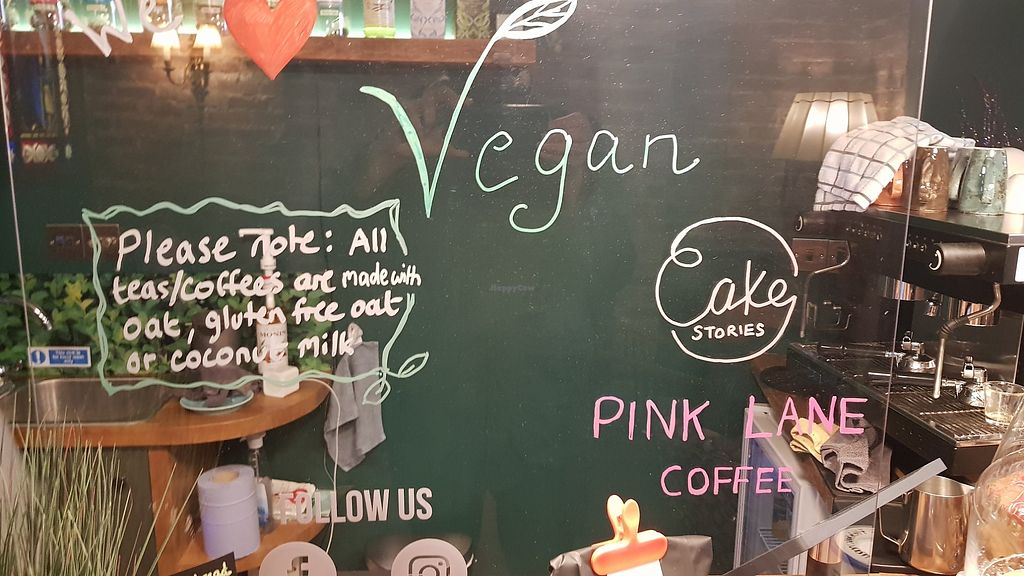 We
Vegan
Please Note: All
teas/coffees are made with
oat, gluten free oat
or coconut milk
Cake
STORIES
PINK LANE
COFFEE
FOLLOW US
HappyCow